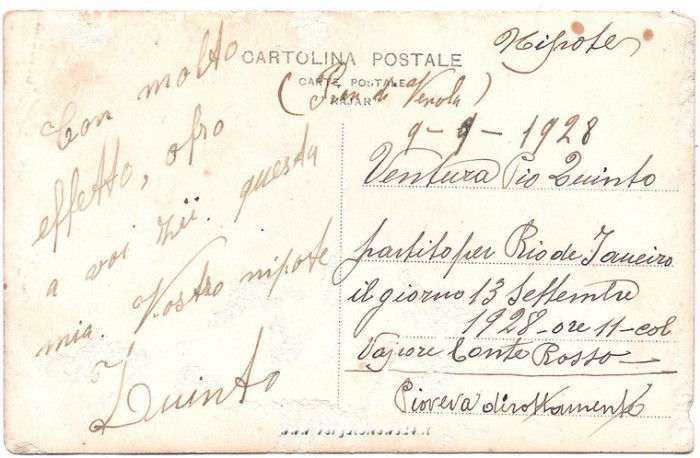 CARTOLINA POSTALE
CARTE POSTALE
Con molto
effetto, ofro
a voi zii. questa
mia. Vostro nipote
Quinto
Nipote
9-9-1928
Ventura Pio Quinto
partito per Rio de Janeiro
il giorno 13 Settembre
1928-ore 11-col
Vapore Conte Rosso
Pioveva dirottamente